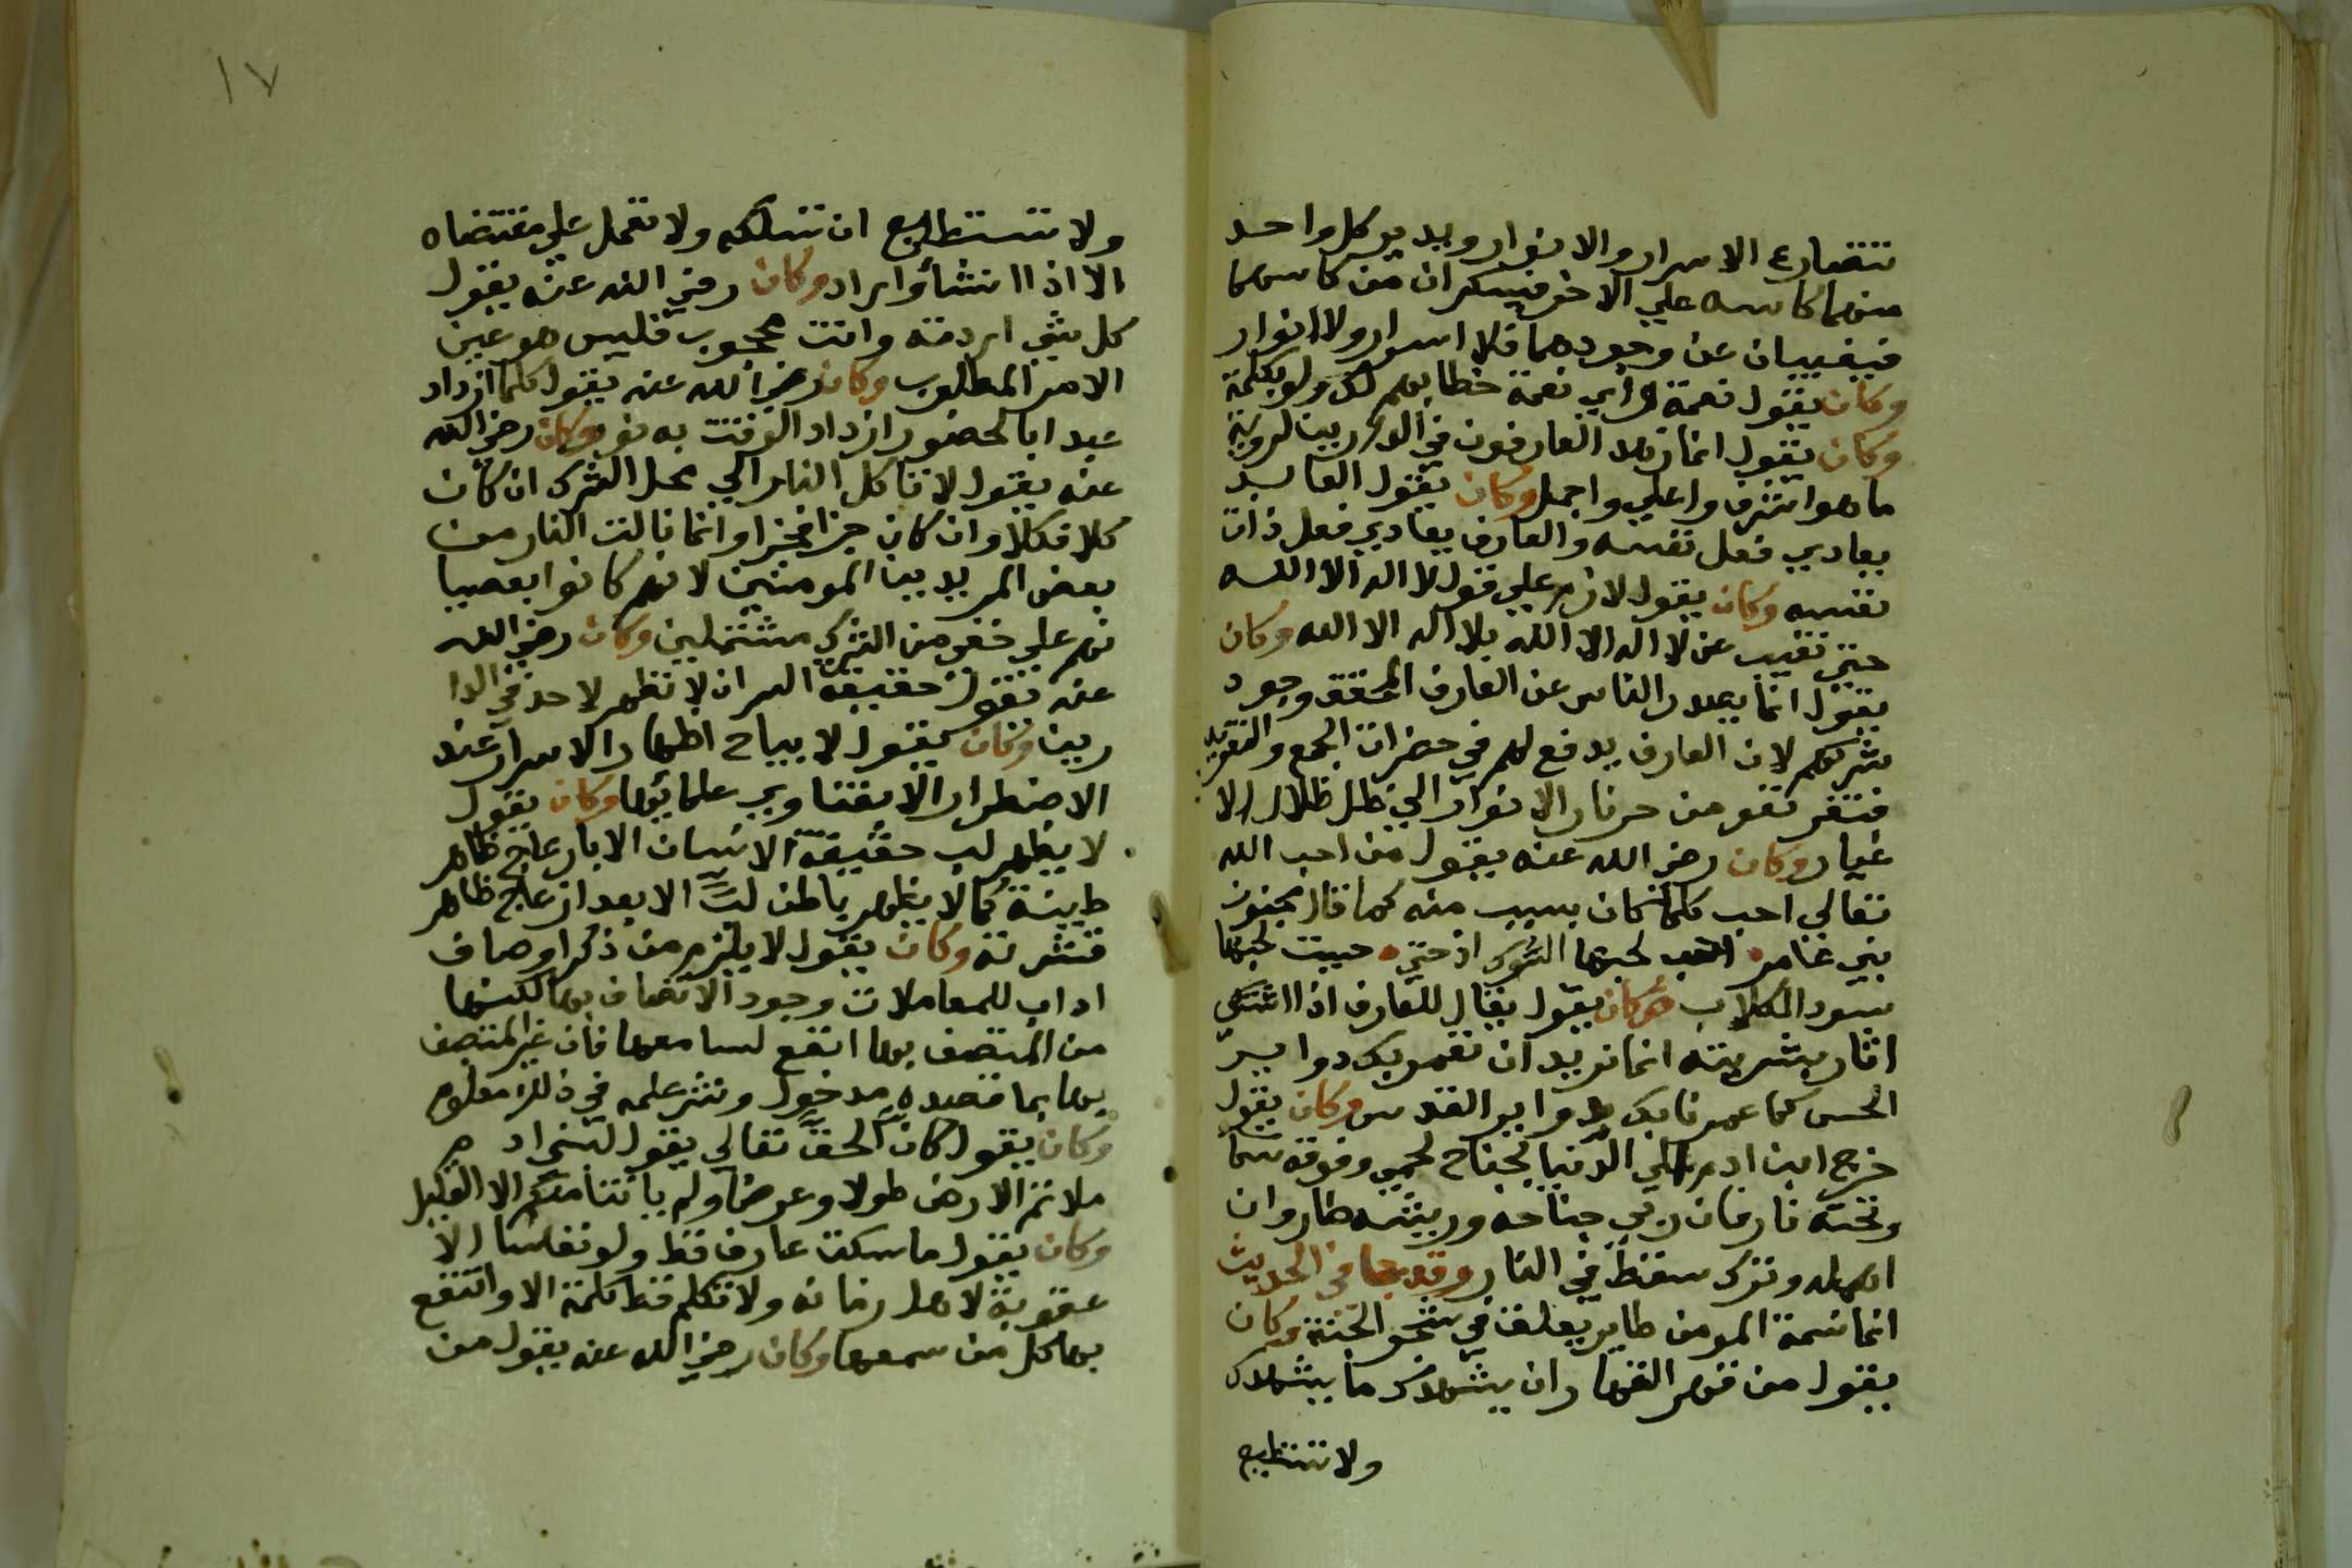 تتضارع الاسرار والانوار ويدير كل واحد
منهما كاسه علي الاخر فيسكران من كاسهما
فيغيبان عن وجودهما فلا اسرار ولا انوار
وكان يقول نعمة واي نعمة خطابهم لك ولو بكلمة
وكان يقول انما زهد العارفون في الدارين لروية
ما هو اشرف واعلي واجمل وكان يقول العابد
يعادي فعل نفسه والعارف يعادي فعل ذات
نفسه وكان يقول لازم علي قول لا اله الا الله
حتي تغيب عن لا اله الا الله بلا اله الا الله وكان
يقول انما يصد الناس عن العارف المحقق وجود
شركهم لان العارف يدفع لهم في حضرات الجمع والتفريد
فتفر نفوس من حر نار الانوار الي ظل ظلال الا
غيار وكان رضي الله عنه يقول من احب الله
تعالي احب كلما كان بسبب منه كما قال مجنون
بني عامر احب لحبها السودان حتي حببت لحبها
سود الكلاب وكان يقول يقال للعارف اذا اشتكي
اثار بشريته انما نريد ان نعمر بك دواير
الحس كما عمرنا بك دواير القدس وكان يقول
خرج ابن ادم الي الدنيا بجناح لحمي وفوقه سما
وتحته نار فان ربي جناحه وريشه طار وان
اهمله وترك سقط في النار وقد جا في الحديث
انما نسمة المومن طاير يعلق في شجر الجنة وكان
يقول من قهر القهار ان يشهدك ما يشهدك
ولا تستطيع
١٧
ولا تستطيع ان تسلكه ولا تعمل علي مقتضاه
الا اذا شأ واراد وكان رضي الله عنه يقول
كل شي اردته وانت محجوب فليس هو عين
الامر المطلوب وكان رضي الله عنه يقول كلما ازداد
عبدا بالحضور ازداد الوقت به نور وكان رضي الله
عنه يقول لا تاكل النار الي محل الشرك ان كان
كلا فكلا وان كان جزا فجزا وانما نالت النار من
بعض المريدينا المومنين لانهم كانوا بعصيا
نهم علي خفي من الشرك مشتملين وكان رضي الله
عنه يقول حقيقة السر ان لا تظهر لاحد في الدا
رين وكان يقول لا يباح اظهار الاسرار عند
الاضطرار الا بفتاوي علمائها وكان يقول
لا يظهر لب حقيقة الانسان الا بازعاج ظاهر
طينة كما لا يظهر باطن لب الا بعد ازعاج ظاهر
قشرته وكان يقول لا يلزم من ذكر اوصاف
اداب للمعاملات وجود الاتصاف بها لكنها
من المتصف بها انفع لسامعها فان غير المتصف
بها بما قصده مدخول ونشر علمه في ذلك معلوم
وكان يقول كان الحق تعالي يقول لبني ادم
ملاتم الارض طولا وعرضا ولم ياتنا منكم الا القليل
وكان يقول ما سكت عارف قط ولو نفسا الا
عقوبة لاهل زمانه ولا تكلم قط كلمة الا وانتفع
بها كل من سمعها وكان رضي الله عنه يقول من